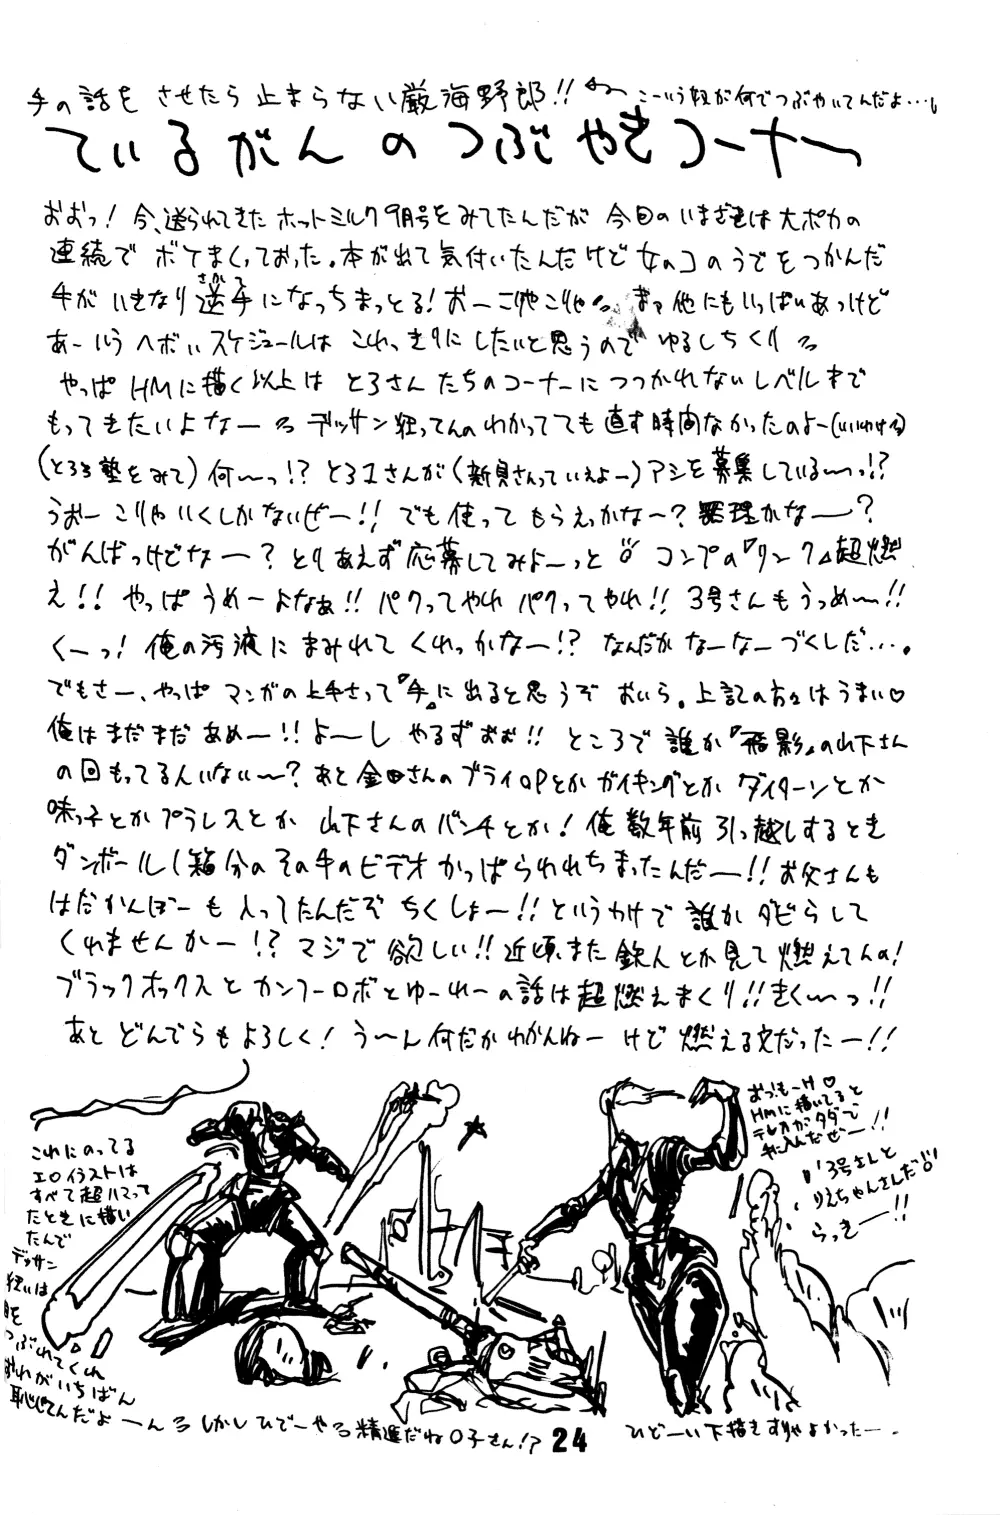 手の話をさせたら止まらない厳海野郎!! こーいう奴が何でつぶやいてんだよ…。
ているがんのつぶやきコーナー
おおっ!今、送られてきたホットミルク9月号をみてたんだが今回のいまざきは大ポカの
連続でボケまくっておった。本が出て気付いたんだけど女のコのうでをつかんだ
手がいきなり逆手になっちまっとる!おーこりゃこりゃ まァ他にもいっぱいあっけど
さかて
あーいうヘボいスケジュールはこれっきりにしたいと思うのでゆるしちくり
やっぱHMに描く以上はとろさんたちのコーナーにつつかれないレベルまで
もってきたいよなー デッサン狂ってんのわかってても直す時間なかったのよー(いいわけ)
(とろろ塾をみて)何〜っ!?とろ1さんが(新貝さんっていえよー)アシを募集している〜っ!?
うおーこりゃいくしかないぜー!!でも使ってもらえっかな〜?無理かなー?
がんばっけどなー?とりあえず応募してみよーっと コンプの『リンク』超燃
え!!やっぱうめーよなぁ!!パクってやれパクってやれ!!3号さんもうっめ〜!!
くーっ!俺の汚液にまみれてくれっかなー!?なんだかなーなーづくしだ…。
でもさー、やっぱマンガの上手さって『手』に出ると思うぞおいら。上記の方々はうまい♡
俺はまだまだあめー!!よ〜しやるずおぉ!!ところで誰か『飛影』の山下さん
の回もってる人いない〜?あと金田さんのブライOPとかガイキングとかダイターンとか
味っ子とかプラレスとか山下さんのバンチとか!俺数年前引っ越しするとき
ダンボール1箱分のその手のビデオかっぱらわれちまったんだー!!お父さんも
はだかんぼーも入ってたんだぞちくしょー!!というわけで誰かダビらして
くれませんかー!?マジで欲しい!!近頃また鉄人とか見て燃えてんの!
ブラックオックスとカンフーロボとゆーれーの話は超燃えまくり!!きく〜っ!!
あとどんでらもよろしく!う〜ん何だかわかんねーけど燃える文だったー!!
これにのってる
エロイラストは
すべて超ハマって
たときに描い
たんで
デッサン
狂いは
目を
つぶれてくれ
おれがいちばん
恥じてんだよーん しかしひでーや 精進だね〇子さん!?
24
おっ!もーH♡
HMに描いてると
テレカがタダで
手に入んだぜー!!
3号さんと
りえちゃんさんだ
らっきー!!
ひどーい下描きすりゃよかったー。